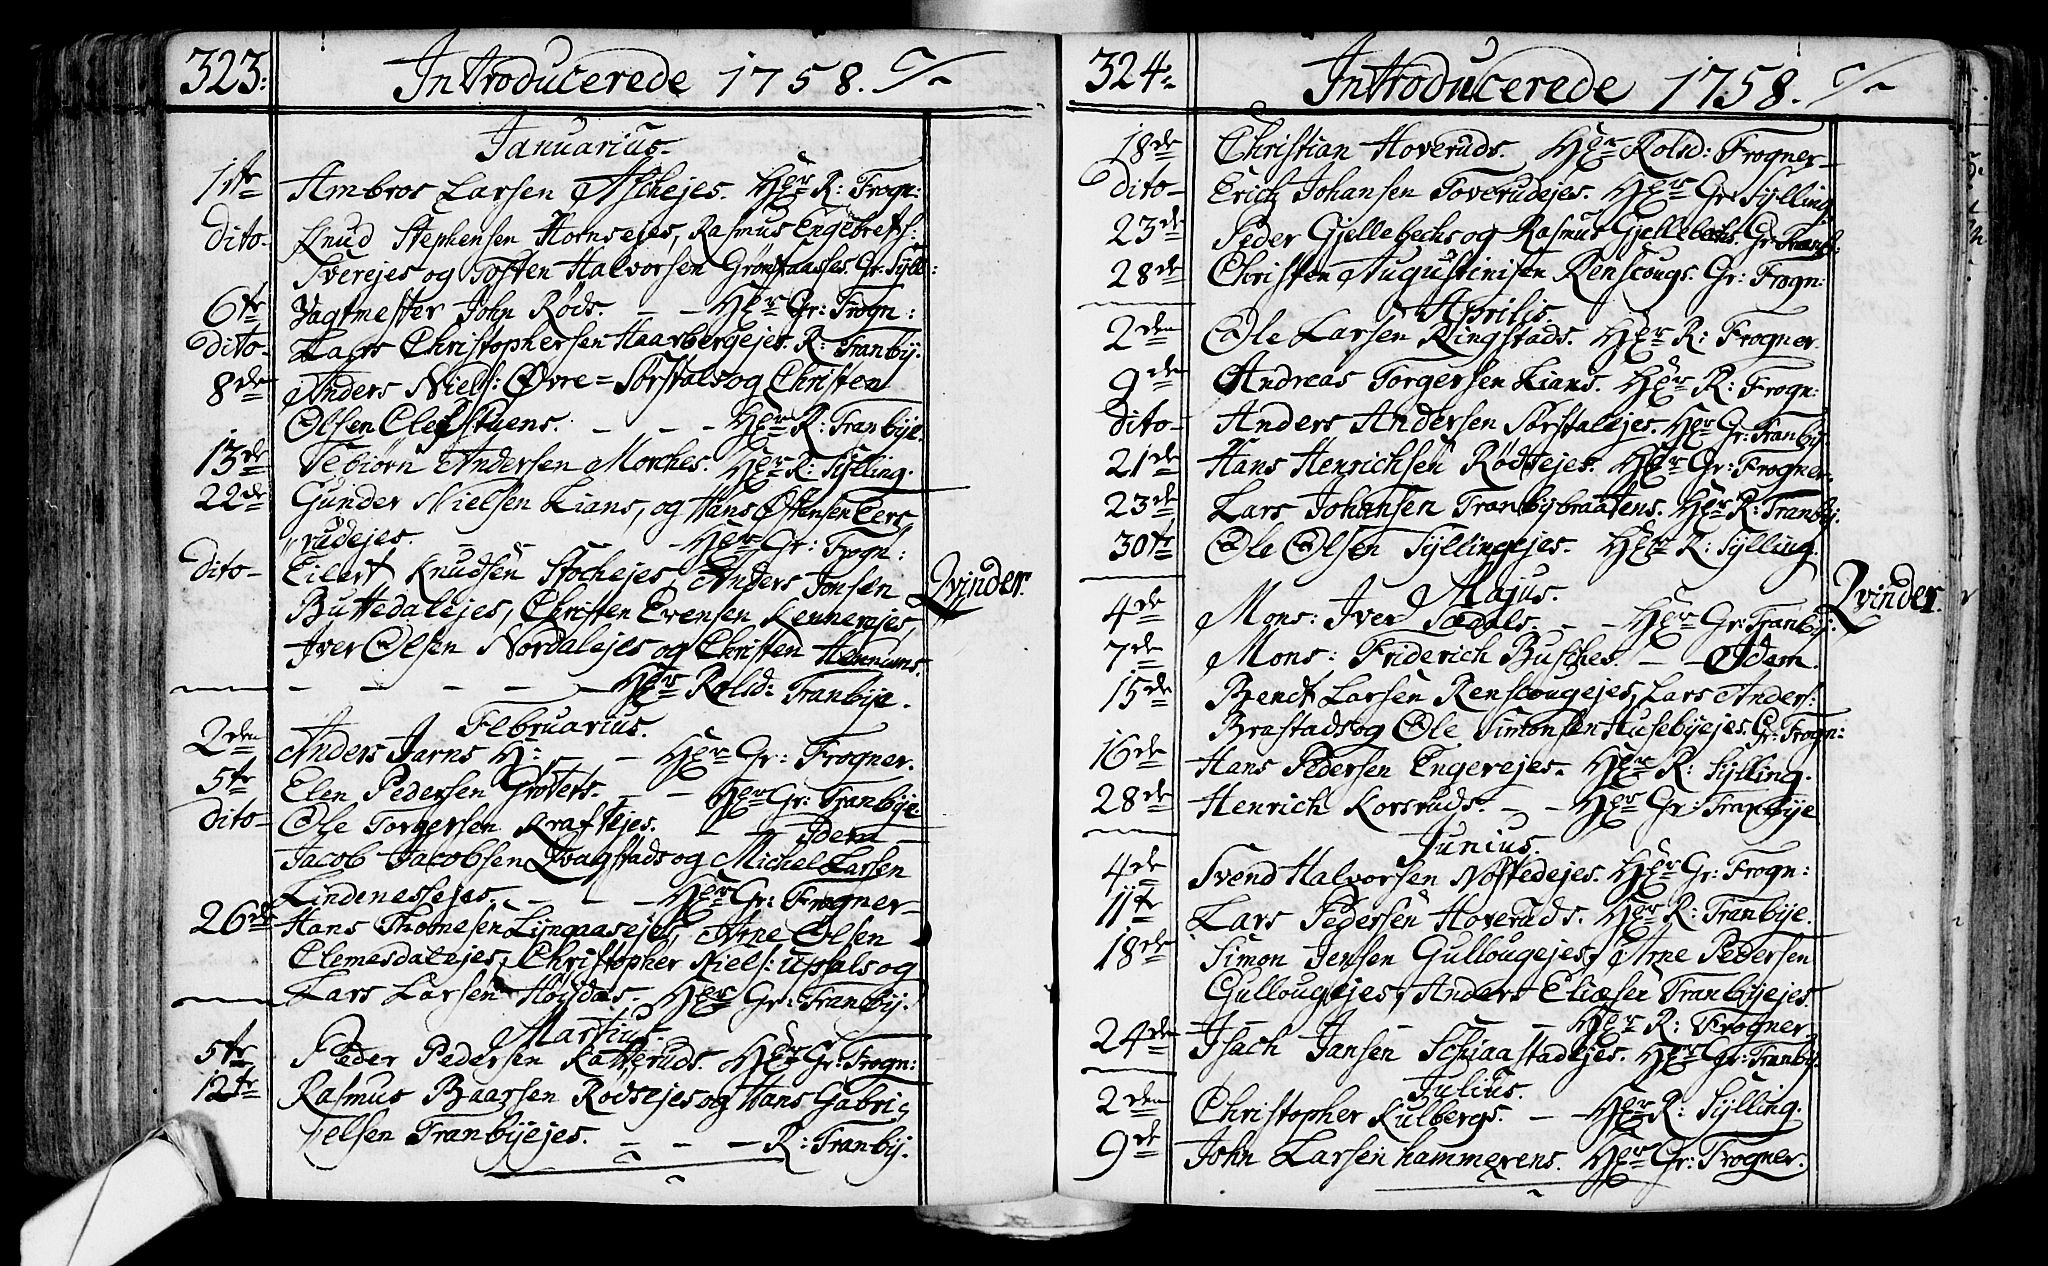 323: Introducerede 1758.
Januarius.
1ste Ambros Larsen Aschejes. Her R: Frogn:
Dito- Knud Stephensen Hornsejes, Rasmus Engebretss:
Sverejes og Tosten Halvorsen Grønstaasses. Gr: Syll:
6te Vagtmester John Røds. - - Her Gr: Frogn:
Dito- Lars Christophersen Haarbergejes. R: Tranbÿ.
8de Anders Niels: Øvre=Sørstals og Christen
Olsen Clefstuens. - - - Her R: Tranbÿe.
13de Tebiørn Andersen Morches. Her R: Sÿlling.
22de Gunder Nielsen Lians, og Hans Østensen Eers
rudejes. - - Her Gr: Frogn:
Dito- Eilert Knudsen Stochejes, Anders Jonsen
Buttedalejes, Christen Evensen Rennemejes,
Iver Olsen Nordalejes og Christen Hennums.
- - - - - Her Rolsd: Tranbÿe.
Qvinder.
Februarius.
2den Anders Jarns H: - Her Gr: Frogner.
5te Elen Pedersen Groters. - - Her Gr: Tranbÿe
Dito- Ole Torgersen Kraftejes. - Idem
Jacob Jacobsen Qvagstads og Michel Larsen
Lindenessejes. - - - Her Gr: Frogner-
26de Hans Thomesen Lÿngaasejes, Arne Olsen
Clemesdalejes, Christopher Niels: Upsals og
Lars Larsen Høÿdas. Her Gr: Tranbÿ.
Martius.
5te Peder Pedersen Katteruds. Her Gr: Frogn:
12te Rasmus Baarsen Rødsejes og Hans Gabri
elsen Tranbÿejes. - - - R: Tranbÿ.
324: Introducerede 1758.
18de Christian Hoveruds. Her Rolsd: Frogner-
Dito- Erich Johansen Toverudejes. Her Gr: Sÿlling.
23de Peder Gjellebechs og Rasmus Gjellebechs. Gr: Tranb:
28de Christen Augustinisen Renscougs. Gr: Frogn:
Aprilis.
2den Ole Larsen Ringstads. Her R: Frogner.
9de Andreas Torgersen Lians. Her R: Frogn:
Dito- Anders Andersen Sørstalejes. Her Gr: Tranbÿ.
21de Hans Henrichsen Rødsejes. Her Gr: Frogner-
23de Lars Johansen Tranbÿbraatens. Her R: Tranbÿ.
30te Ole Olsen Sÿllingejes. Her R: Sÿlling.
Majus.
4de Mons: Iver Sædals. - - Her Gr: Tranbÿ.
Qvinder.
7de Mons: Friderich Busches. - - Idem.
15de Bendt Larsen Renscougejes, Lars Anders:
Brastads og Ole Simonsen Husebÿejes. Gr: Frogn:
16de Hans Pedersen Engerejes. Her R: Sÿlling.
28de Henrich Korsruds. - - Her Gr: Tranbÿe
Junius.
4de Svend Halvorsen Nostedejes. Her Gr: Frogn:
11te Lars Pedersen Hoveruds. Her R: Tranbÿe.
18de Simon Jensen Gullougejes, Arne Pedersen
Gullougejes, Anders Eliæsen Tranbÿejes.
- - Her R: Frogner-
24de Isach Jansen Schiaastadejes. Her Gr: Tranbÿ.
Julius.
2den Christopher Kulbergs. - - Her R: Sÿlling.
9de John Larsen hammerens. Her Gr: Frogner.